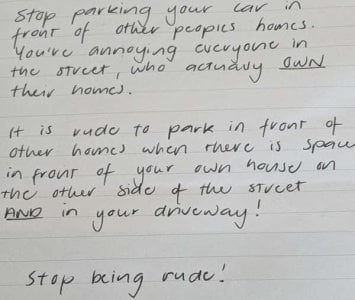 Stop parking your car in
front of other peoples homes.
You're annoying everyone in
the street, who actually OWN
their homes.
It is rude to park in front of
other homes when there is space
in front of your own house on
the other side of the street
AND in your driveway!
Stop being rude!